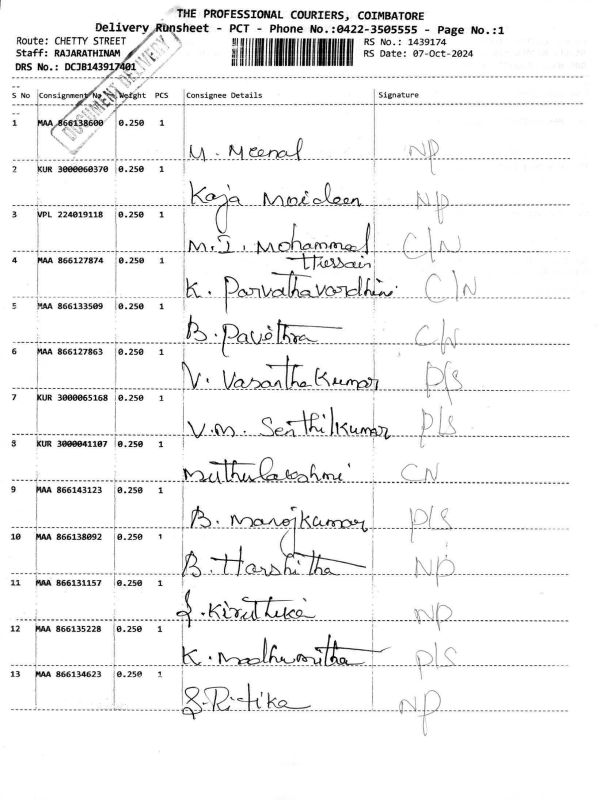 THE PROFESSIONAL COURIERS, COIMBATORE
Delivery Runsheet - PCT - Phone No.:0422-3505555 - Page No.:1
Route: CHETTY STREET
RS No.: 1439174
Staff: RAJARATHINAM
RS Date: 07-Oct-2024
DRS No.: DCJB143917401
DOCUMENT DELIVERY
S No Consignment No. Weight PCS Consignee Details Signature
1 MAA 866138600 0.250 1
M. Meenal NP
2 KUR 3000060370 0.250 1
Kaja Moideen NP
3 VPL 224019118 0.250 1
M.I. Mohammed C/N
Hussain
4 MAA 866127874 0.250 1
K. Parvathavardhini C/N
5 MAA 866133509 0.250 1
B. Pavithra C/N
6 MAA 866127863 0.250 1
V. Vasantha Kumar P/S
7 KUR 3000065168 0.250 1
V.M. Senthilkumar P/S
8 KUR 3000041107 0.250 1
Muthulakshmi CN
9 MAA 866143123 0.250 1
B. Manojkumar P/S
10 MAA 866138092 0.250 1
B. Harshitha NP
11 MAA 866131157 0.250 1
S. Kiruthika NP
12 MAA 866135228 0.250 1
K. Madhumitha P/S
13 MAA 866134623 0.250 1
S. Ritika NP